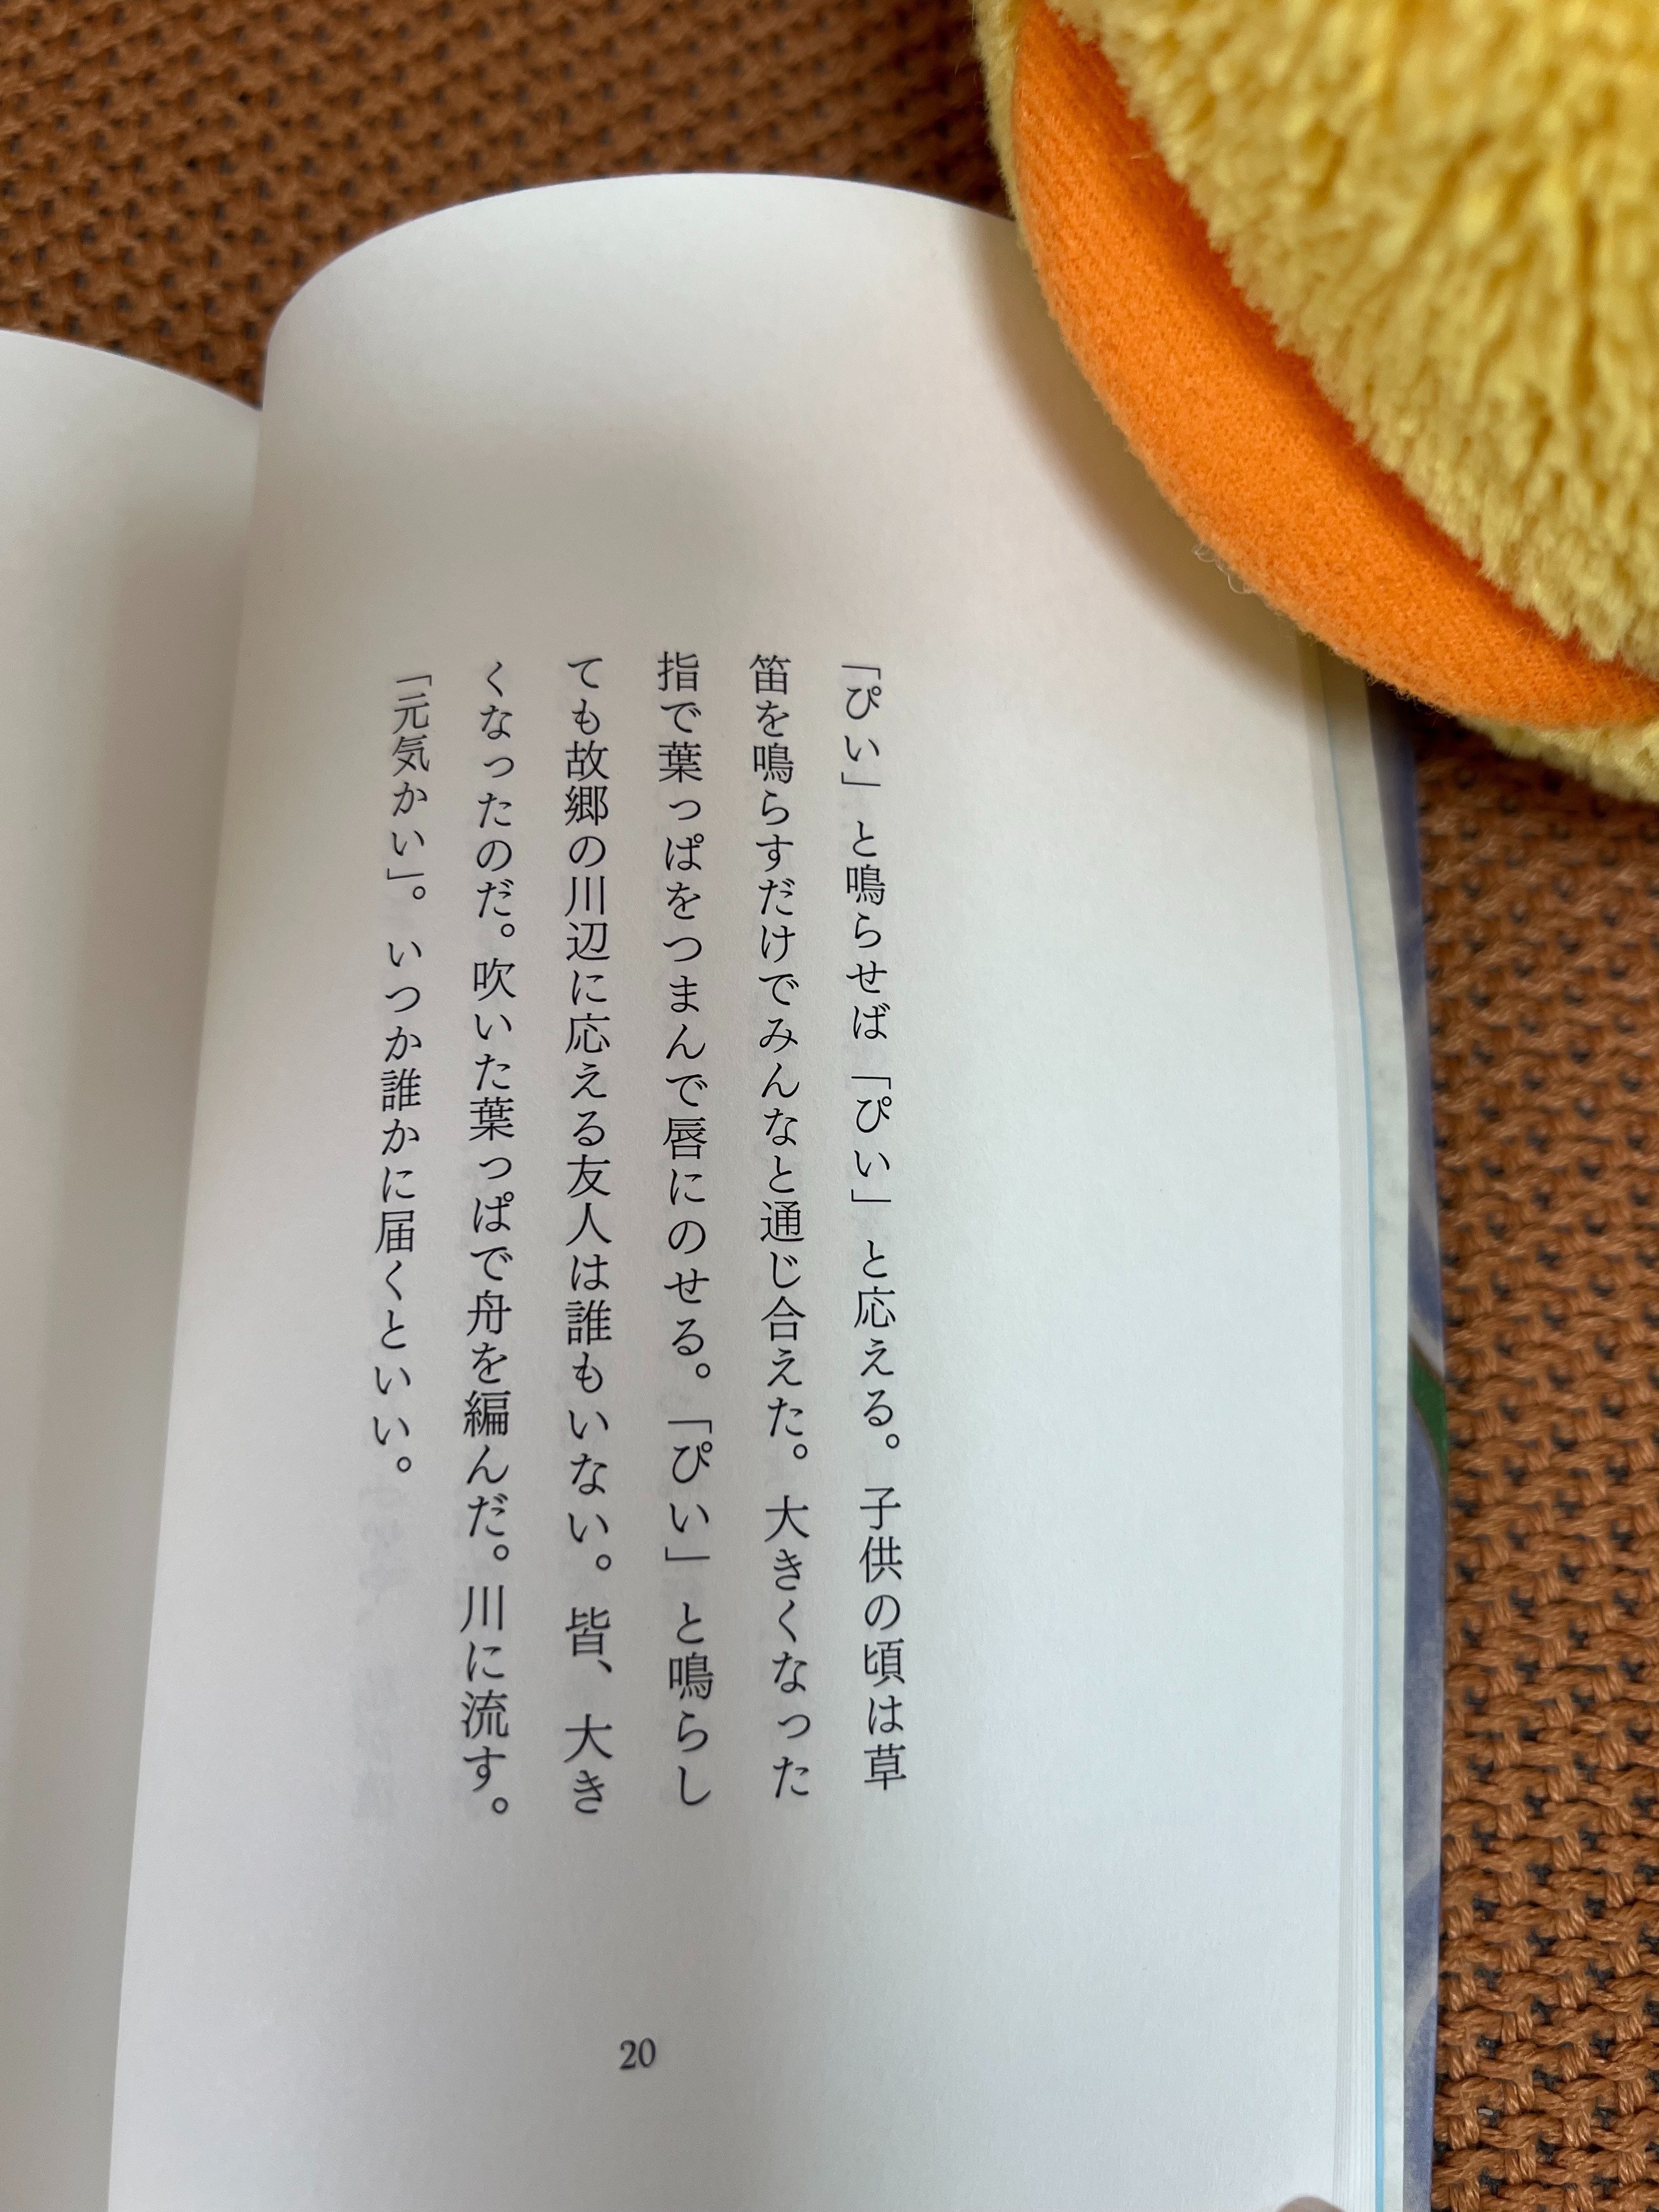 「ぴい」と鳴らせば「ぴい」と応える。子供の頃は草
笛を鳴らすだけでみんなと通じ合えた。大きくなった
指で葉っぱをつまんで唇にのせる。「ぴい」と鳴らし
ても故郷の川辺に応える友人は誰もいない。皆、大き
くなったのだ。吹いた葉っぱで舟を編んだ。川に流す。
「元気かい」。いつか誰かに届くといい。
20